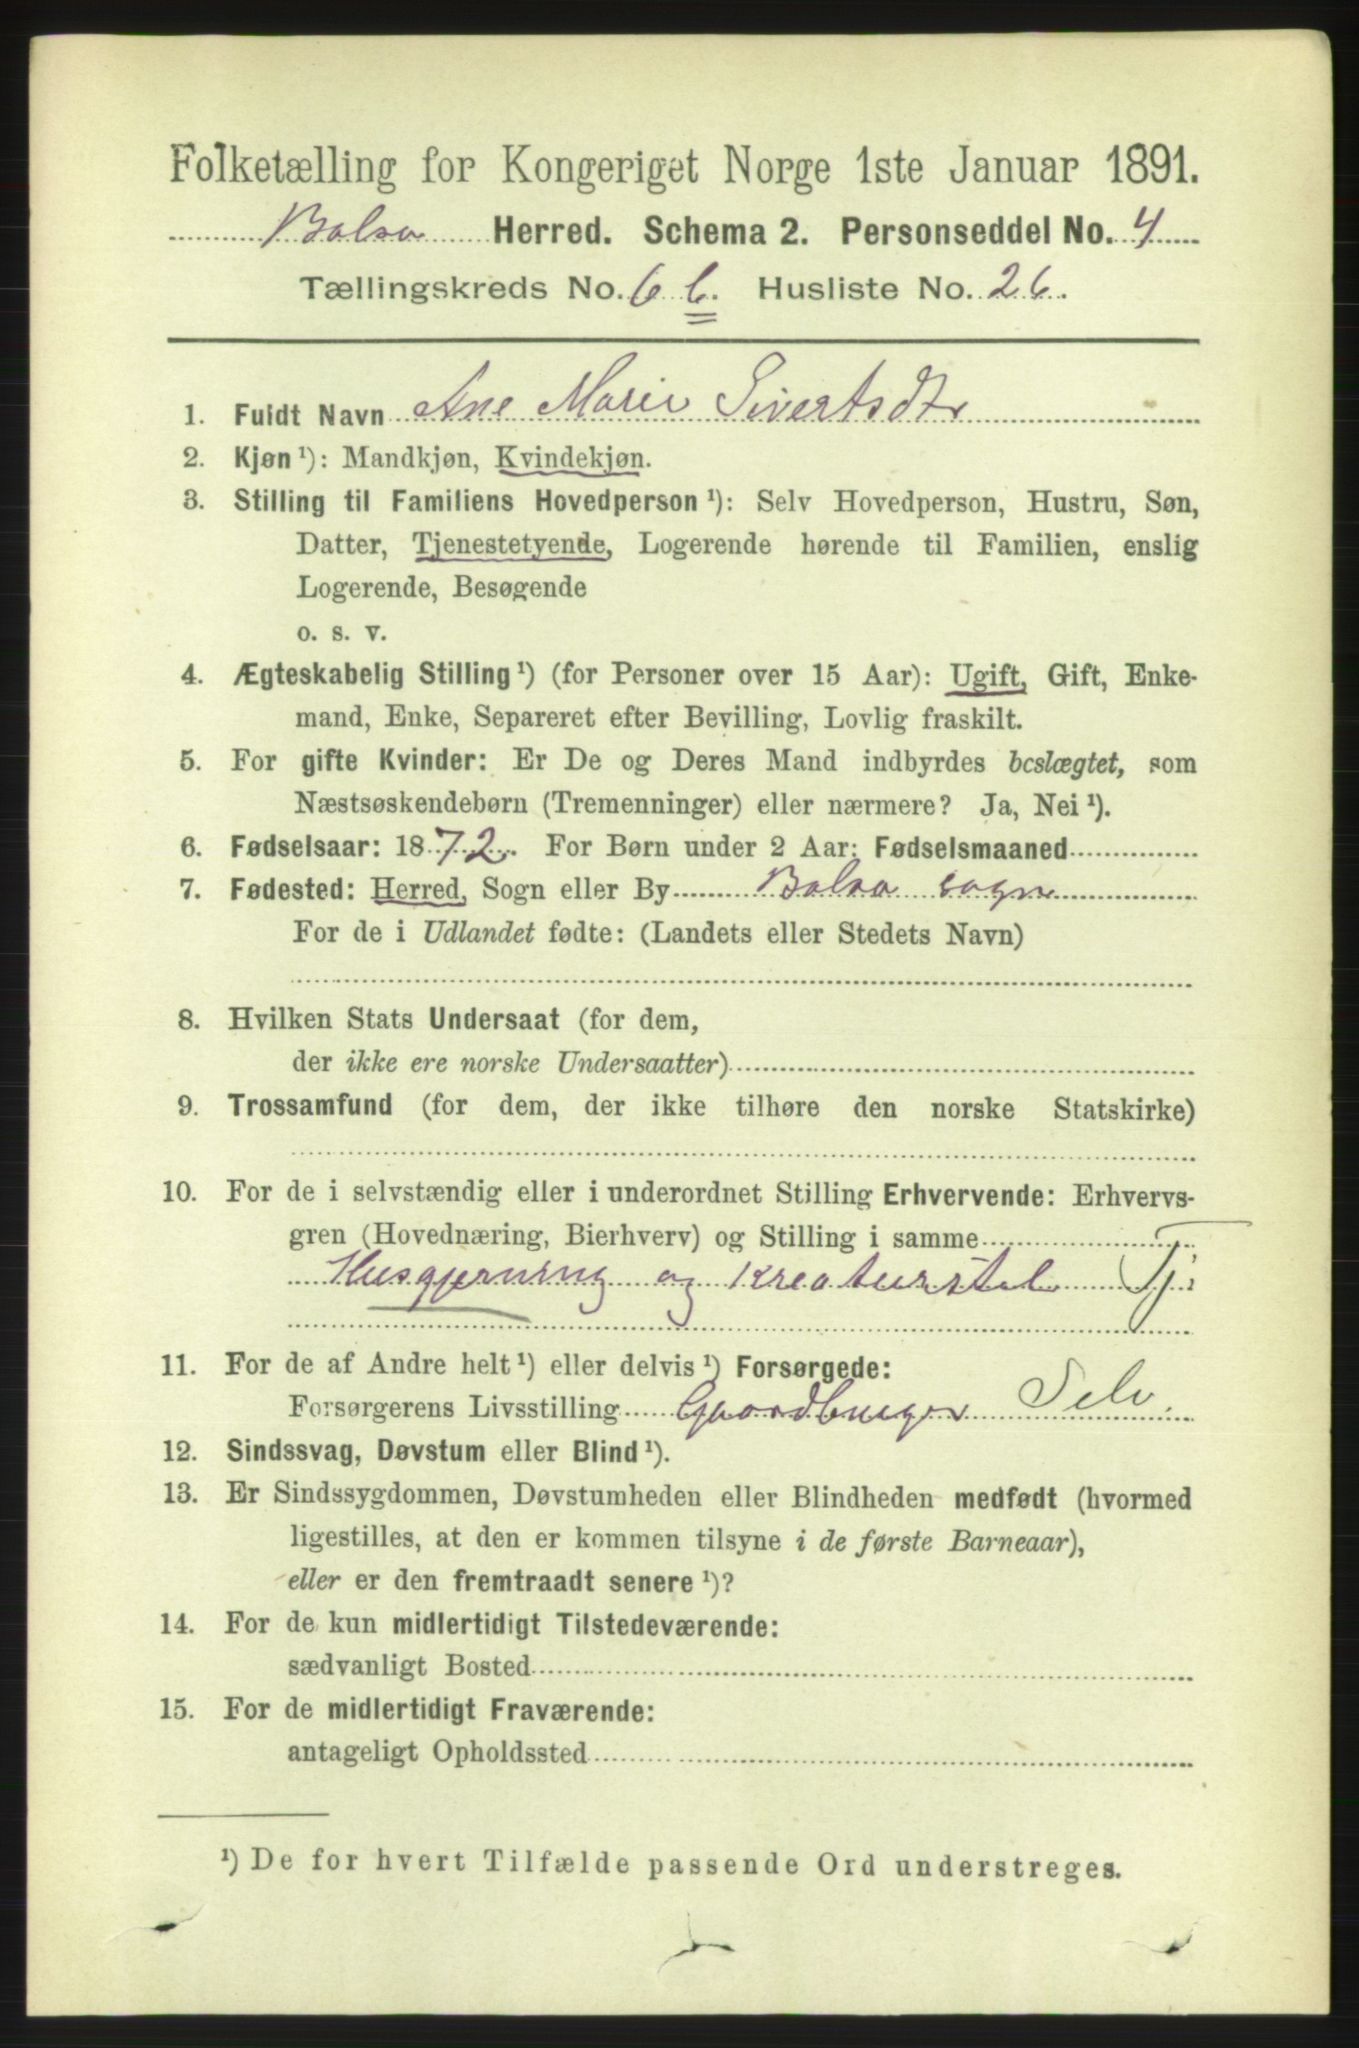 Folketælling for Kongeriget Norge 1ste Januar 1891.
Bolsø Herred. Schema 2. Personseddel No. 4
Tællingskreds No. 6 b. Husliste No. 26.
1. Fuldt Navn Ane Marie Sivertsdtr
2. Kjøn ¹): Mandkjøn, Kvindekjøn.
3. Stilling til Familiens Hovedperson ¹): Selv Hovedperson, Hustru, Søn,
Datter, Tjenestetyende, Logerende hørende til Familien, enslig
Logerende, Besøgende
o. s. v.
4. Ægteskabelig Stilling ¹) (for Personer over 15 Aar): Ugift, Gift, Enke-
mand, Enke, Separeret efter Bevilling, Lovlig fraskilt.
5. For gifte Kvinder: Er De og Deres Mand indbyrdes beslægtet, som
Næstsøskendebørn (Tremenninger) eller nærmere? Ja, Nei ¹).
6. Fødselsaar: 1872. For Børn under 2 Aar: Fødselsmaaned
7. Fødested: Herred, Sogn eller By Bolsø sogn
For de i Udlandet fødte: (Landets eller Stedets Navn)
8. Hvilken Stats Undersaat (for dem,
der ikke ere norske Undersaatter)
9. Trossamfund (for dem, der ikke tilhøre den norske Statskirke)
10. For de i selvstændig eller i underordnet Stilling Erhvervende: Erhvervs-
gren (Hovednæring, Bierhverv) og Stilling i samme
Husgjerning og Kreaturstel Tj.
11. For de af Andre helt ¹) eller delvis ¹) Forsørgede:
Forsørgerens Livsstilling Gaardbruger Selv.
12. Sindssvag, Døvstum eller Blind ¹).
13. Er Sindssygdommen, Døvstumheden eller Blindheden medfødt (hvormed
ligestilles, at den er kommen tilsyne i de første Barneaar),
eller er den fremtraadt senere ¹)?
14. For de kun midlertidigt Tilstedeværende:
sædvanligt Bosted
15. For de midlertidigt Fraværende:
antageligt Opholdssted
¹) De for hvert Tilfælde passende Ord understreges.